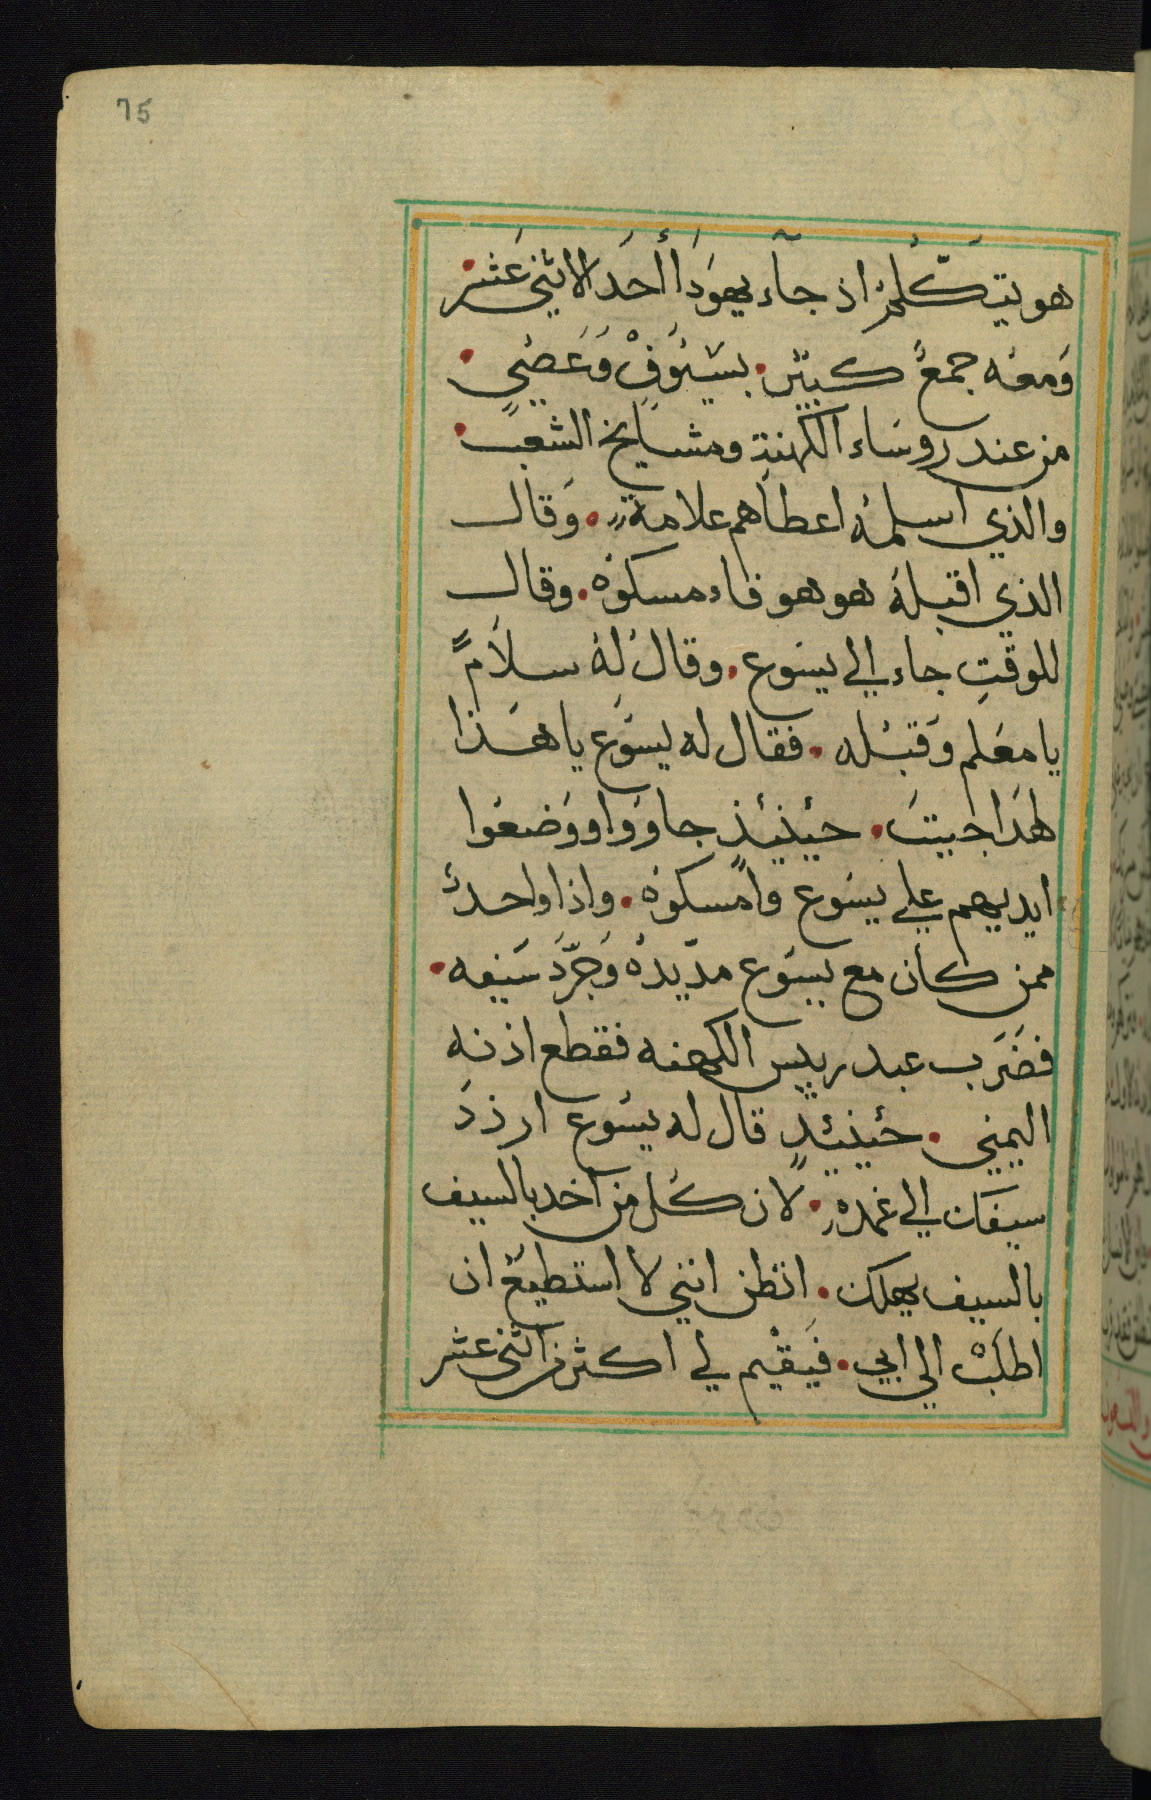 75
هو يتكلم اذ جآء يهودا أحد الاثني عشر
ومعه جمع كبير بسيوف وعصي
من عند روساء الكهنة ومشايخ الشعب
والذي اسلمه اعطاهم علامة وقال
الذي اقبله هو هو فامسكوه وقال
للوقت جاء الي يسوع وقال له سلام
يا معلم وقبله فقال له يسوع يا هذا
لهذا جيت حينيذ جاووا ووضعوا
ايديهم علي يسوع وامسكوه واذا واحد
ممن كان مع يسوع مد يده وجرد سيفه
فضرب عبد ريس الكهنه فقطع اذنه
اليمني حينيذ قال له يسوع اردد
سيفك الي غمده لان كل من اخد بالسيف
بالسيف يهلك اتظن انني لا استطيع ان
اطلب الي ابي فيقيم لي اكثر من اثني عشر